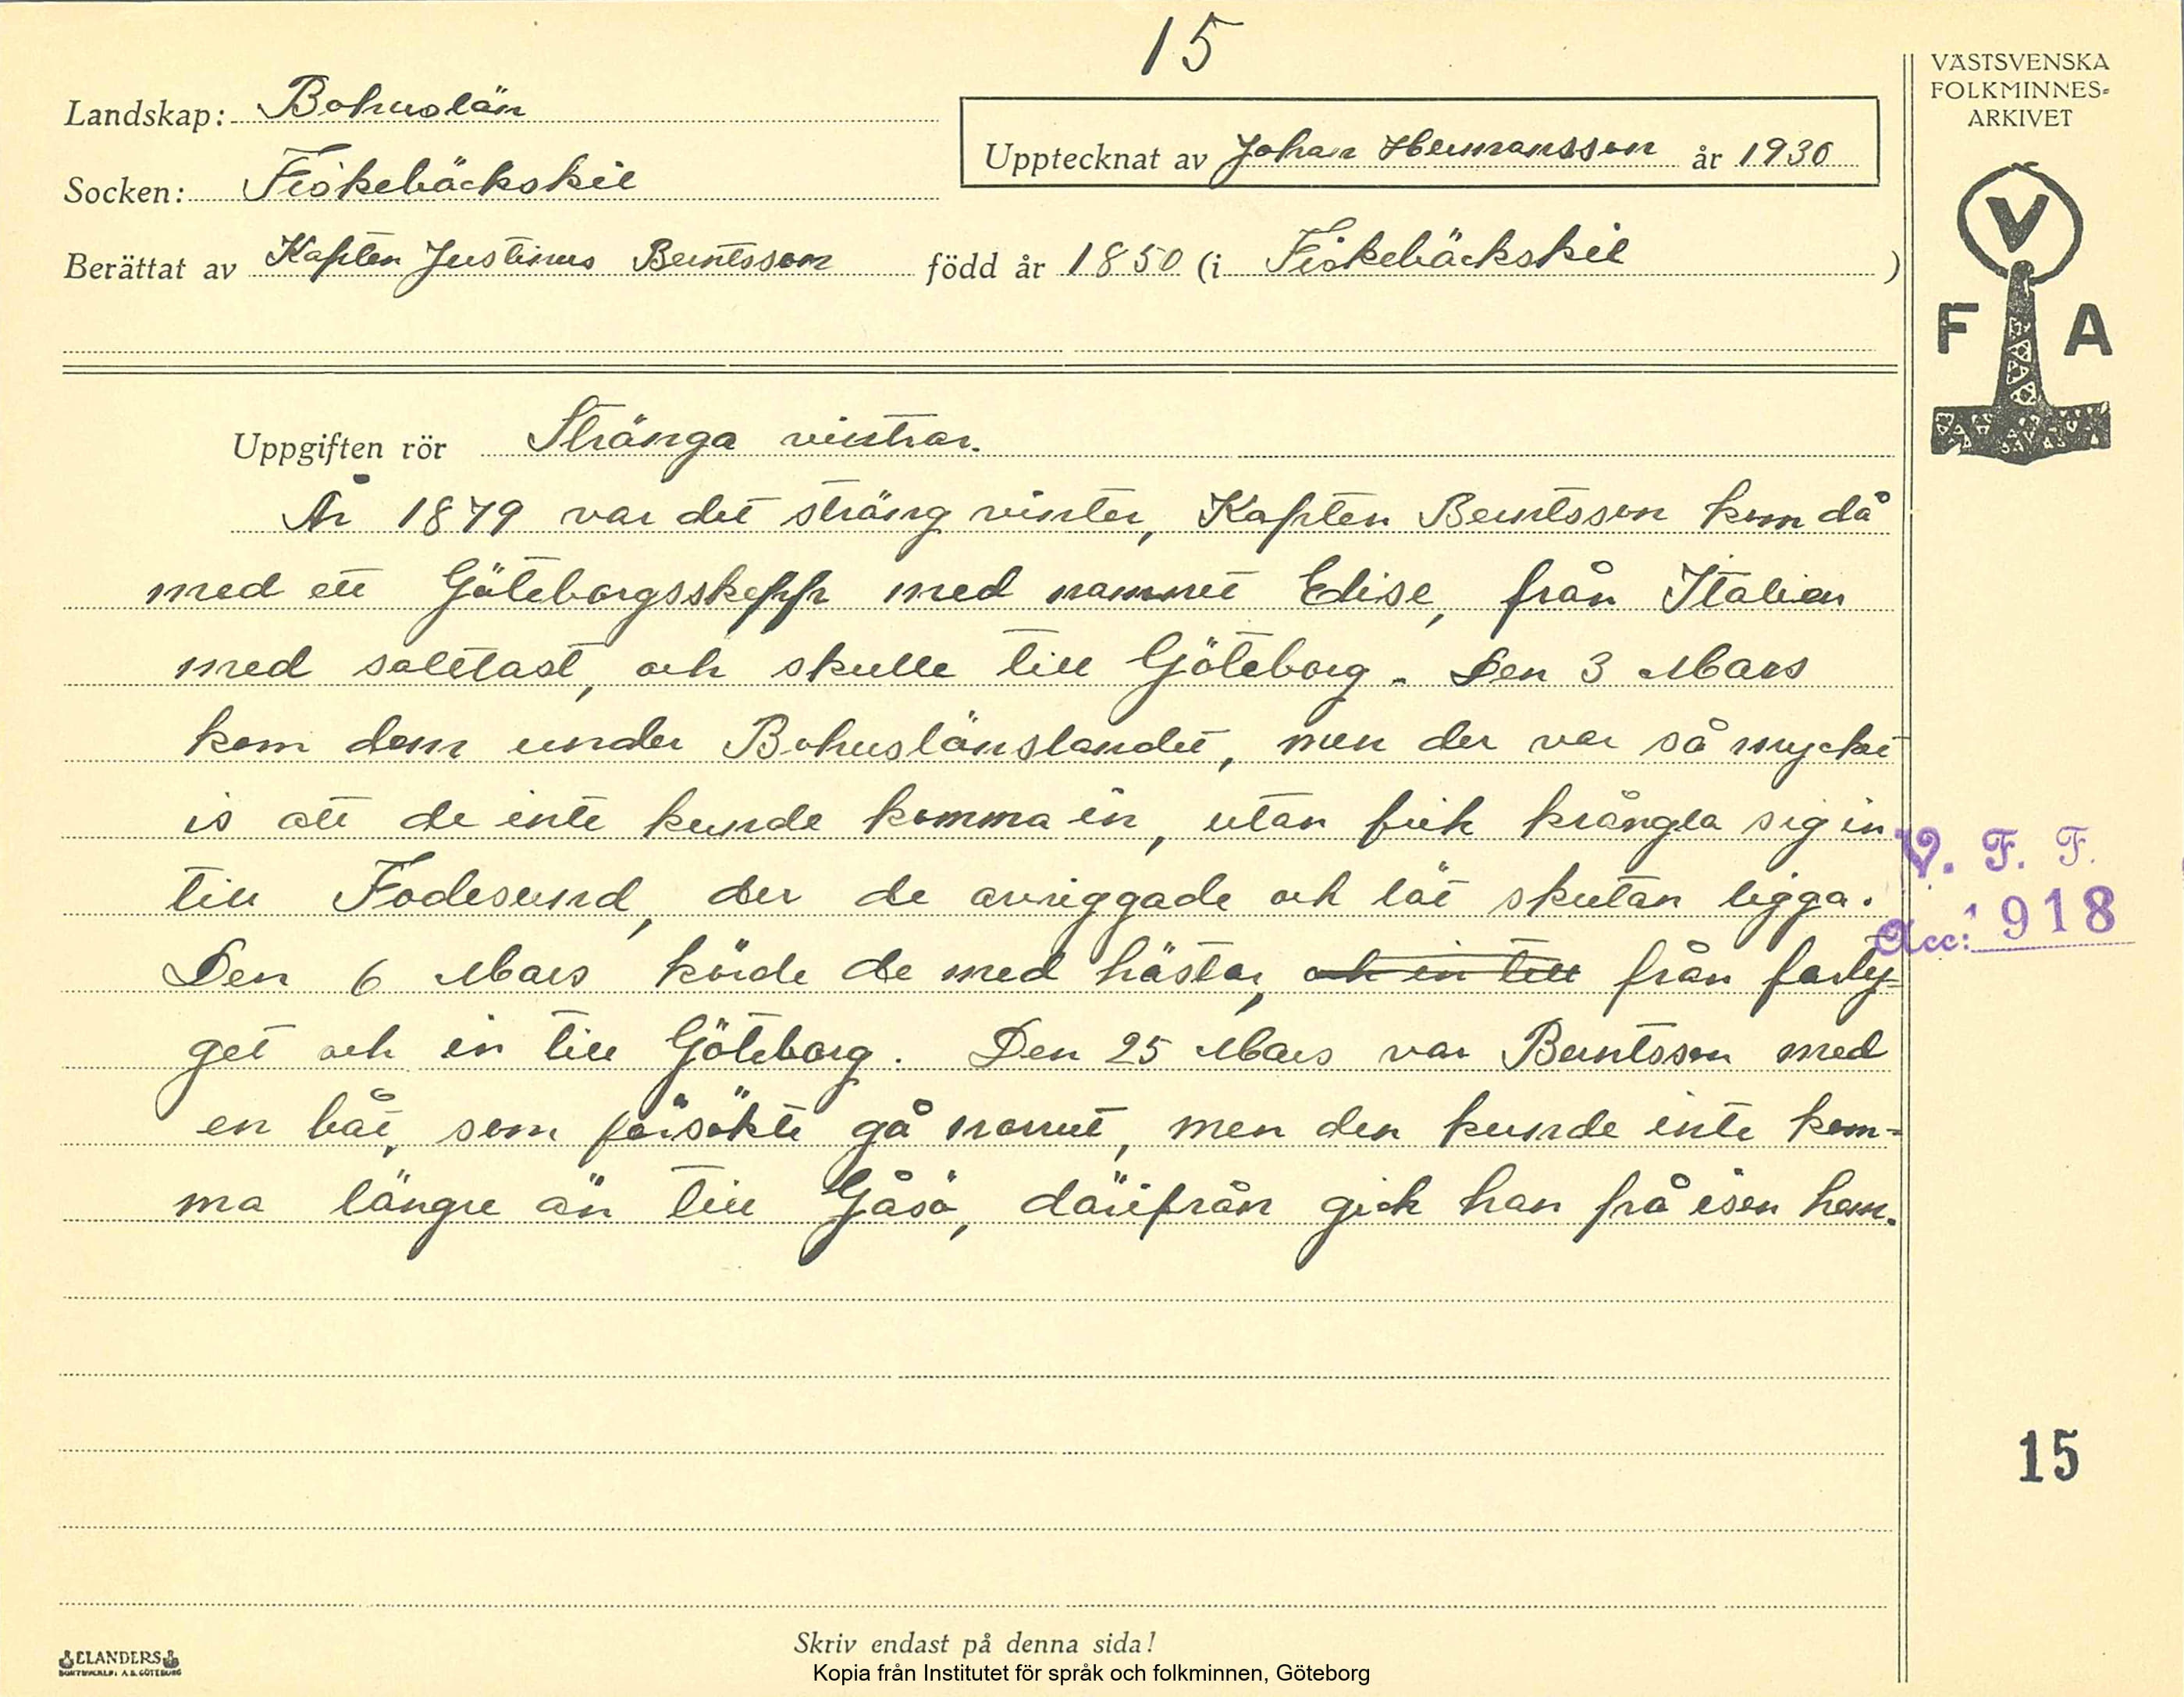 15
VÄSTSVENSKA
FOLKMINNES-
ARKIVET
Landskap: Bohuslän
Upptecknat av Johan Hermansson år 1930
Socken: Fiskebäckskil
Berättat av Kapten Justinus Berntsson född år 1850 (i Fiskebäckskil )
V
F A
Uppgiften rör Stränga vintrar.
År 1879 var det sträng vinter, Kapten Berntsson kom då
med ett Göteborgsskepp med namnet Elise, från Italien
med saltlast, och skulle till Göteborg. Den 3 Mars
kom dom under Bohuslänslandet, men der var så mycket
is att de inte kunde komma in, utan fick krångla sig in
till Fodesund, der de avriggade och lät skutan ligga.
Den 6 Mars körde de med hästar, och in till från farty-
get och in till Göteborg. Den 25 Mars var Berntsson med
en båt, som försökte gå norrut, men den kunde inte kom-
ma längre än till Gåsö, därifrån gick han på isen hem.
V. F. F.
Acc: 1918
15
Skriv endast på denna sida!
ELANDERS
BOKTRYCKERI A.B. GÖTEBORG
Kopia från Institutet för språk och folkminnen, Göteborg